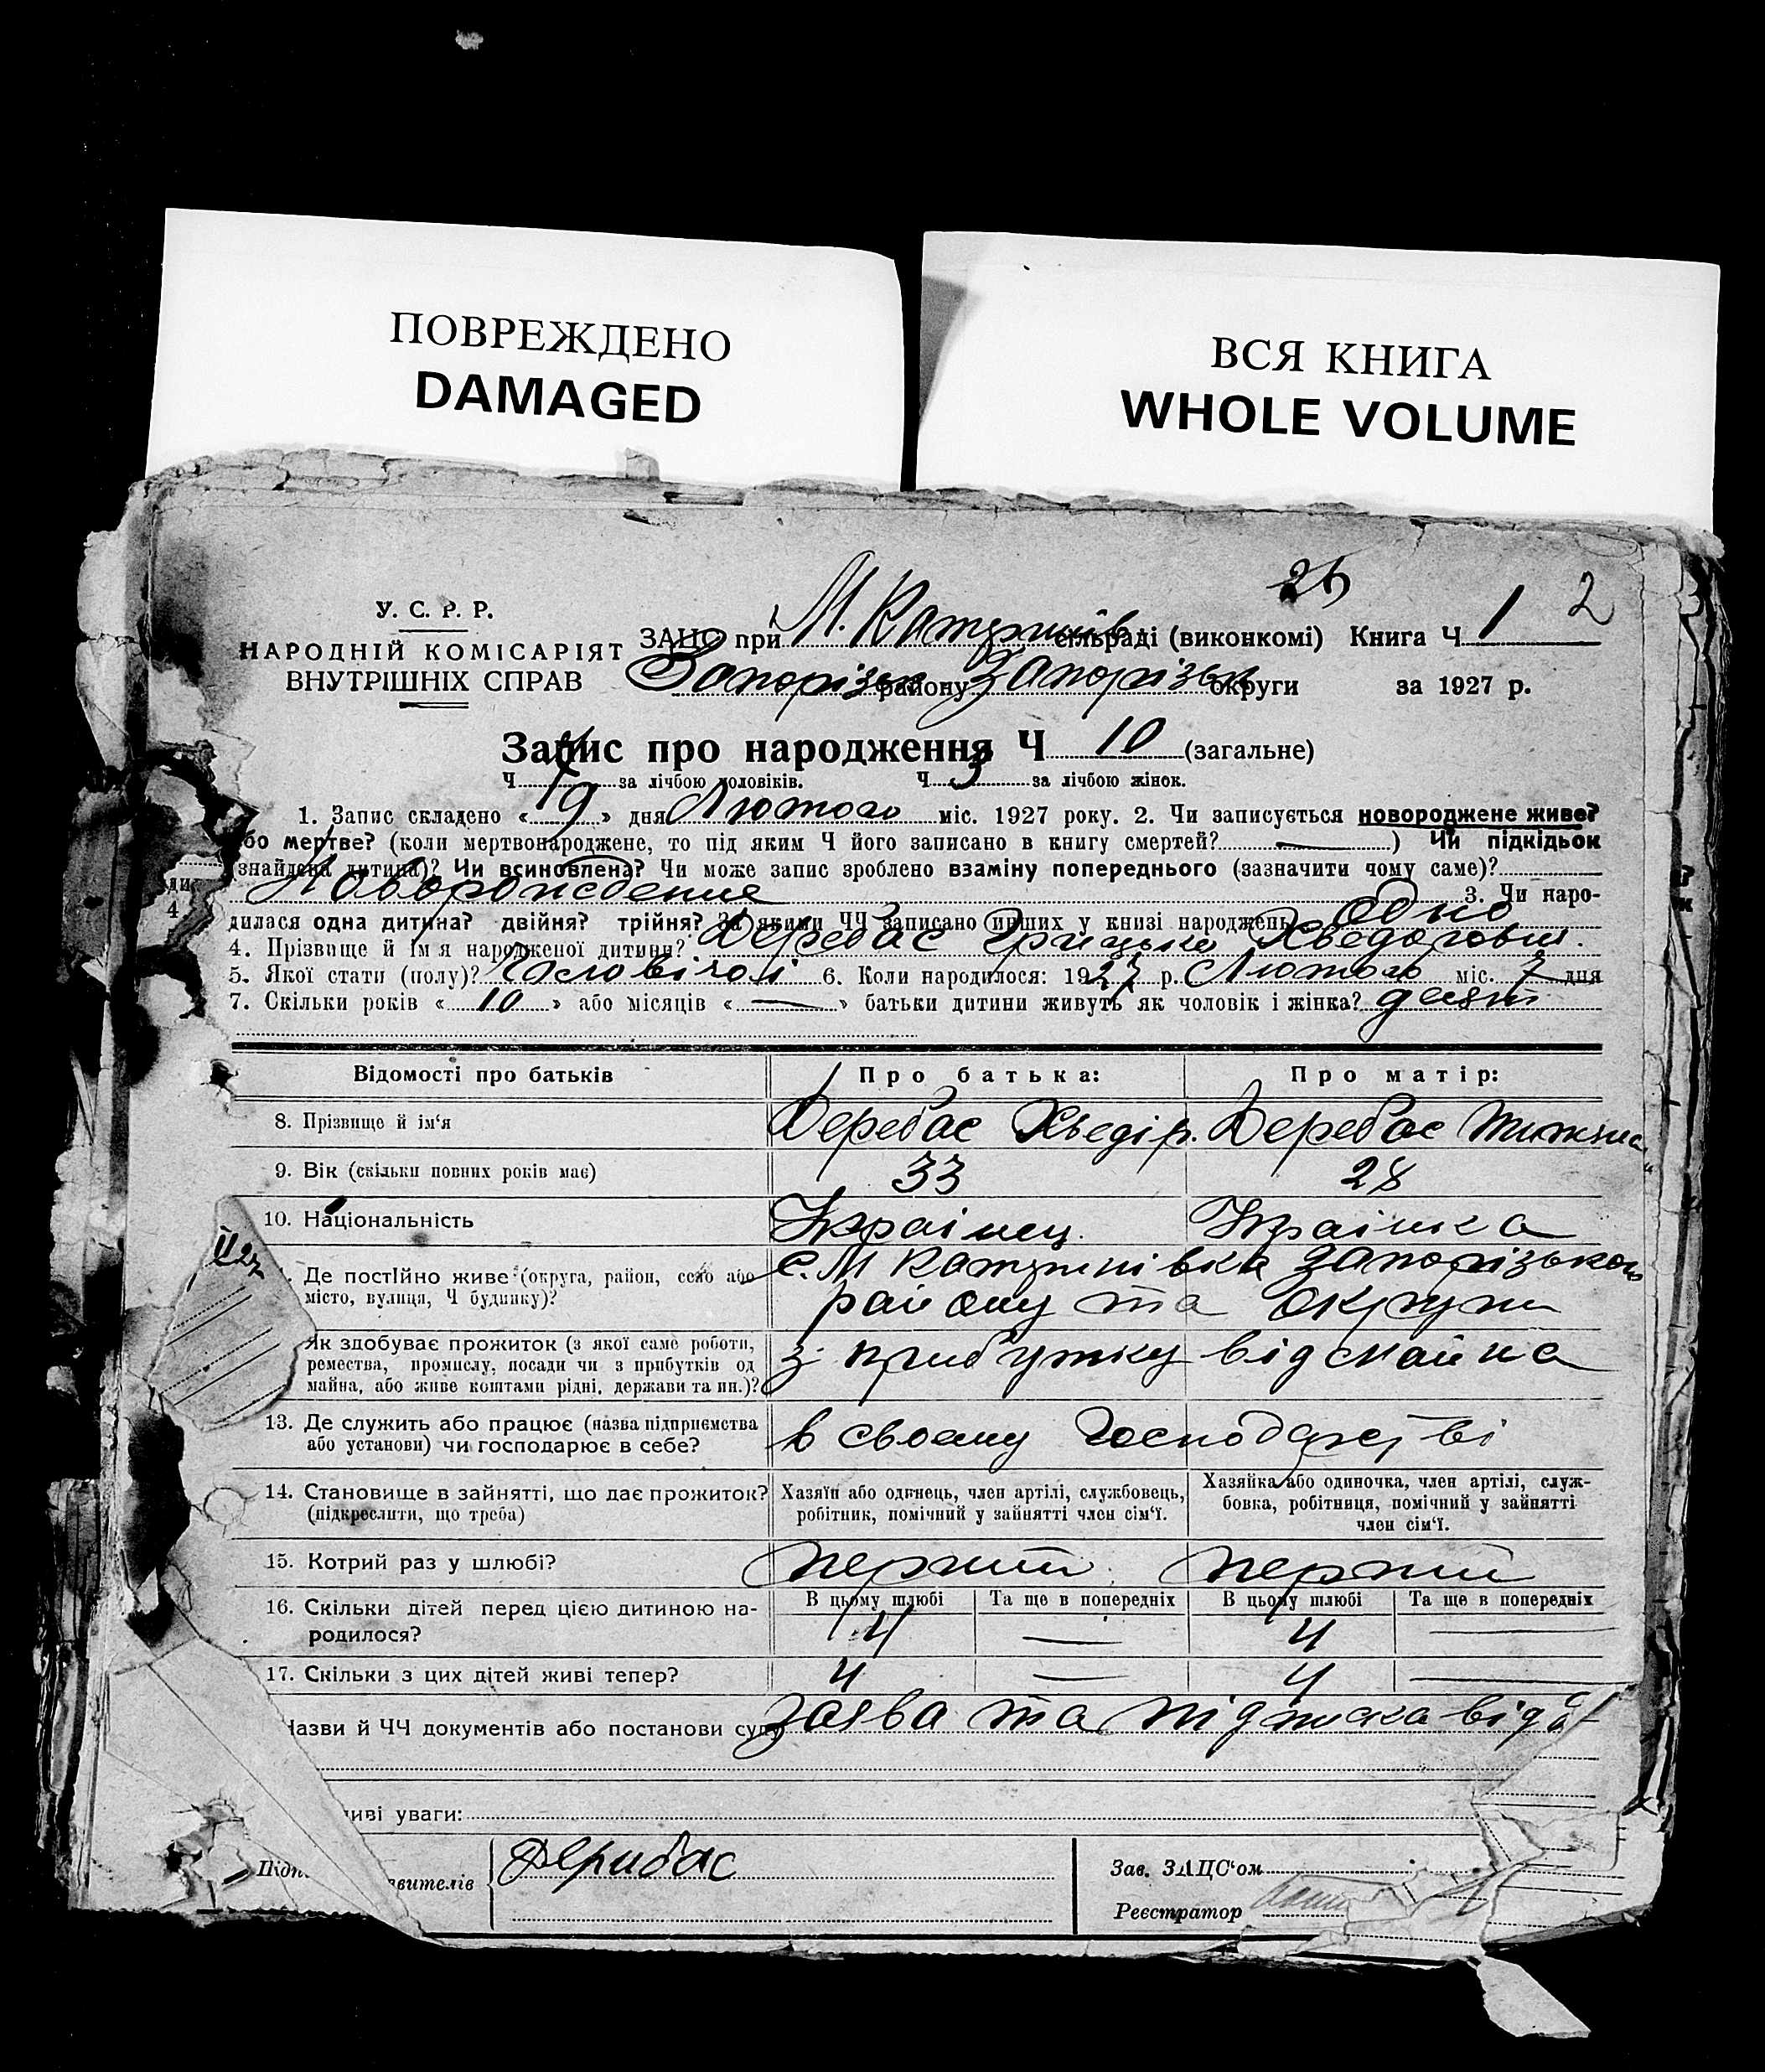 ПОВРЕЖДЕНО
DAMAGED
ВСЯ КНИГА
WHOLE VOLUME
26
2
У. С. Р. Р.
НАРОДНІЙ КОМІСАРІЯТ
ВНУТРІШНІХ СПРАВ
ЗАЦС при М. Катушків сільраді (виконкомі) Книга Ч 1
Запорізьк району Запорізьк округи за 1927 р.
Запис про народження Ч 10 (загальне)
Ч за лічбою чоловіків. Ч 3 за лічбою жінок.
1. Запис складено « 19 » дня Лютого міс. 1927 року. 2. Чи записується новороджене живе?
бо мертве? (коли мертвонароджене, то під яким Ч його записано в книгу смертей? — ) Чи підкідьок
(знайдена дитина)? Чи всиновлена? Чи може запис зроблено взаміну попереднього (зазначити чому саме)?
Новорождення 3. Чи наро-
дилася одна дитина? двійня? трійня? За якими ЧЧ записано инших у книзі народжень Одно
4. Прізвище й ім'я народженої дитини? Деребас Грицько Хведоровиш.
5. Якої стати (полу)? Чоловічої 6. Коли народилося: 1927 р. Лютого міс. 7 дня
7. Скільки років « 10 » або місяців « — » батьки дитини живуть як чоловік і жінка?
Відомості про батьків
Про батька:
Про матір:
8. Прізвище й ім'я Деребас Хведір. Деребас
9. Вік (скільки повних років має) 33 28
10. Національність Українец. Українка
Де постійно живе (округа, район, село або місто, вулиця, Ч будинку)?
с. М Катушнівка Запорізького
району та округи
Як здобуває прожиток (з якої саме роботи,
ремества, промислу, посади чи з прибутків од
майна, або живе коштами рідні, держави та ин.)?
з прибутку від майна
13. Де служить або працює (назва підприємства
або установи) чи господарює в себе?
в своему господарстві
14. Становище в зайнятті, що дає прожиток?
(підкреслити, що треба)
Хазяїн або одинець, член артілі, службовець,
робітник, помічний у зайнятті член сім'ї.
Хазяйка або одиночка, член артілі, служ-
бовка, робітниця, помічний у зайнятті
член сім'ї.
15. Котрий раз у шлюбі? перший перший
В цьому шлюбі Та ще в попередніх В цьому шлюбі Та ще в попередніх
16. Скільки дітей перед цією дитиною на-
родилося?
4 — 4 —
17. Скільки з цих дітей живі тепер? 4 — 4 —
Назви й ЧЧ документів або постанови суду заява та підписка від
иві уваги:
Підп
вителів Дерибас
Зав. ЗАЦС'ом
Реєстратор